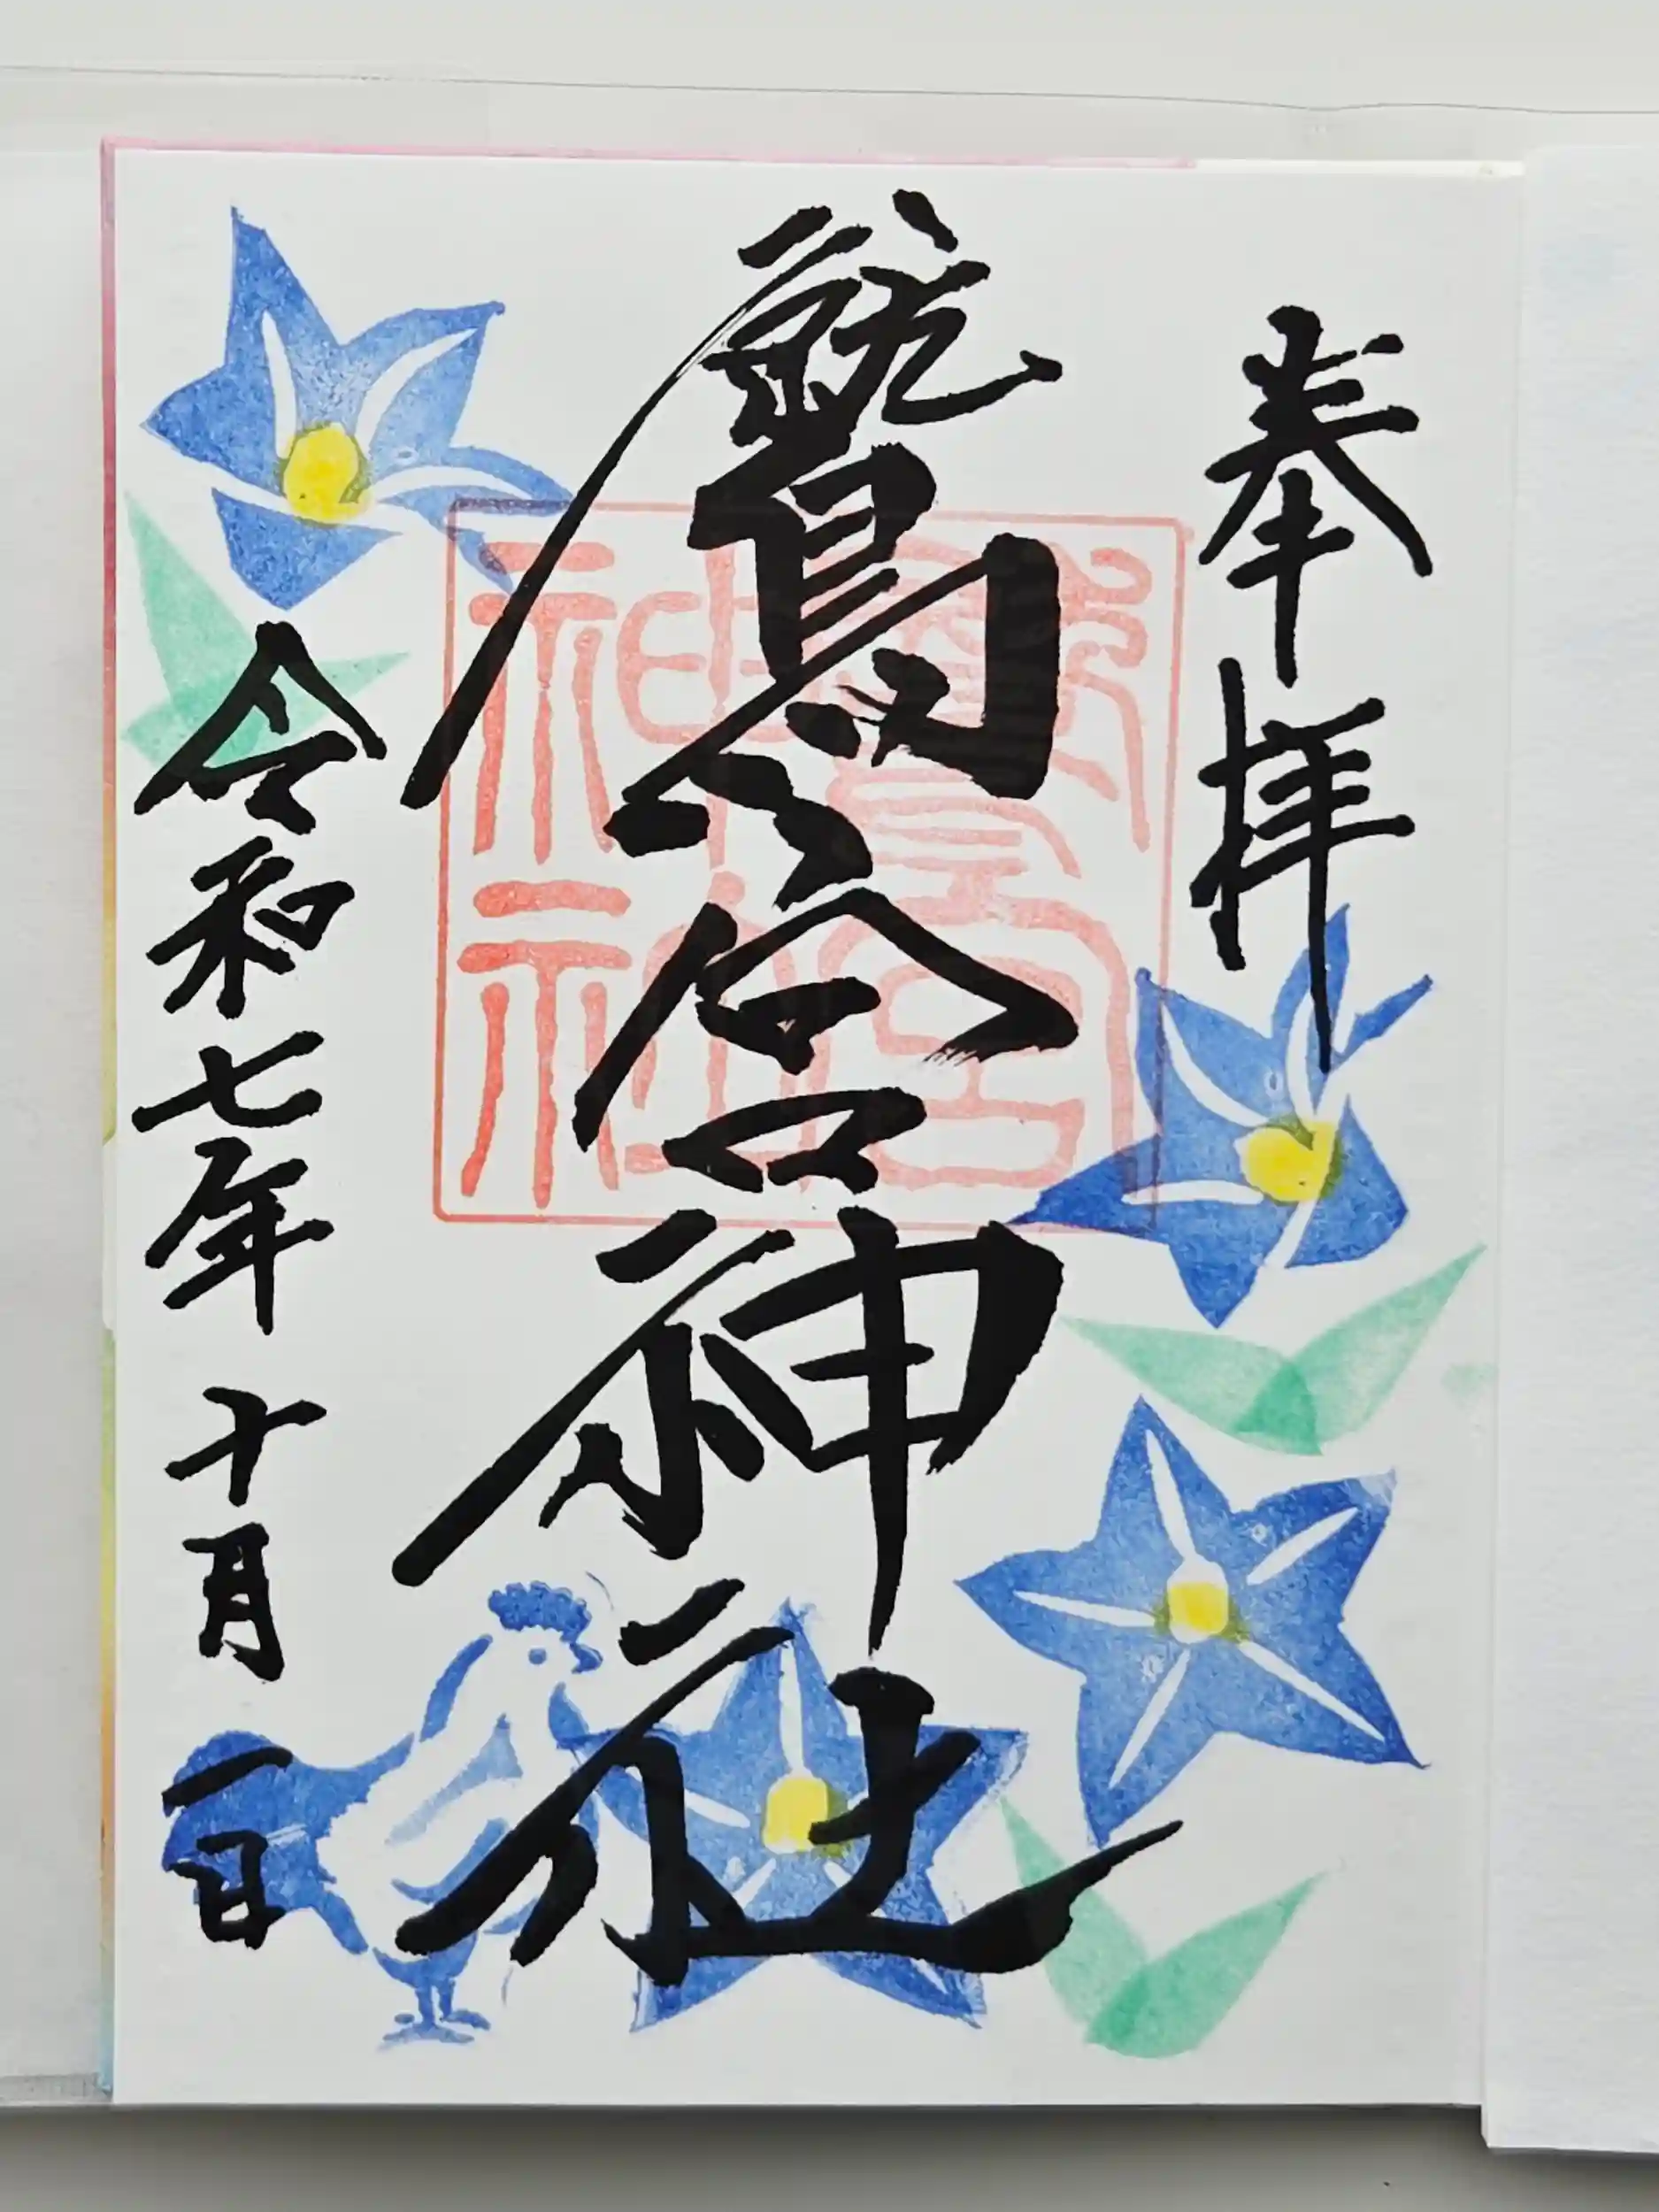 奉拝
鷲宮神社
令和七年十月一日
鷲宮
神社